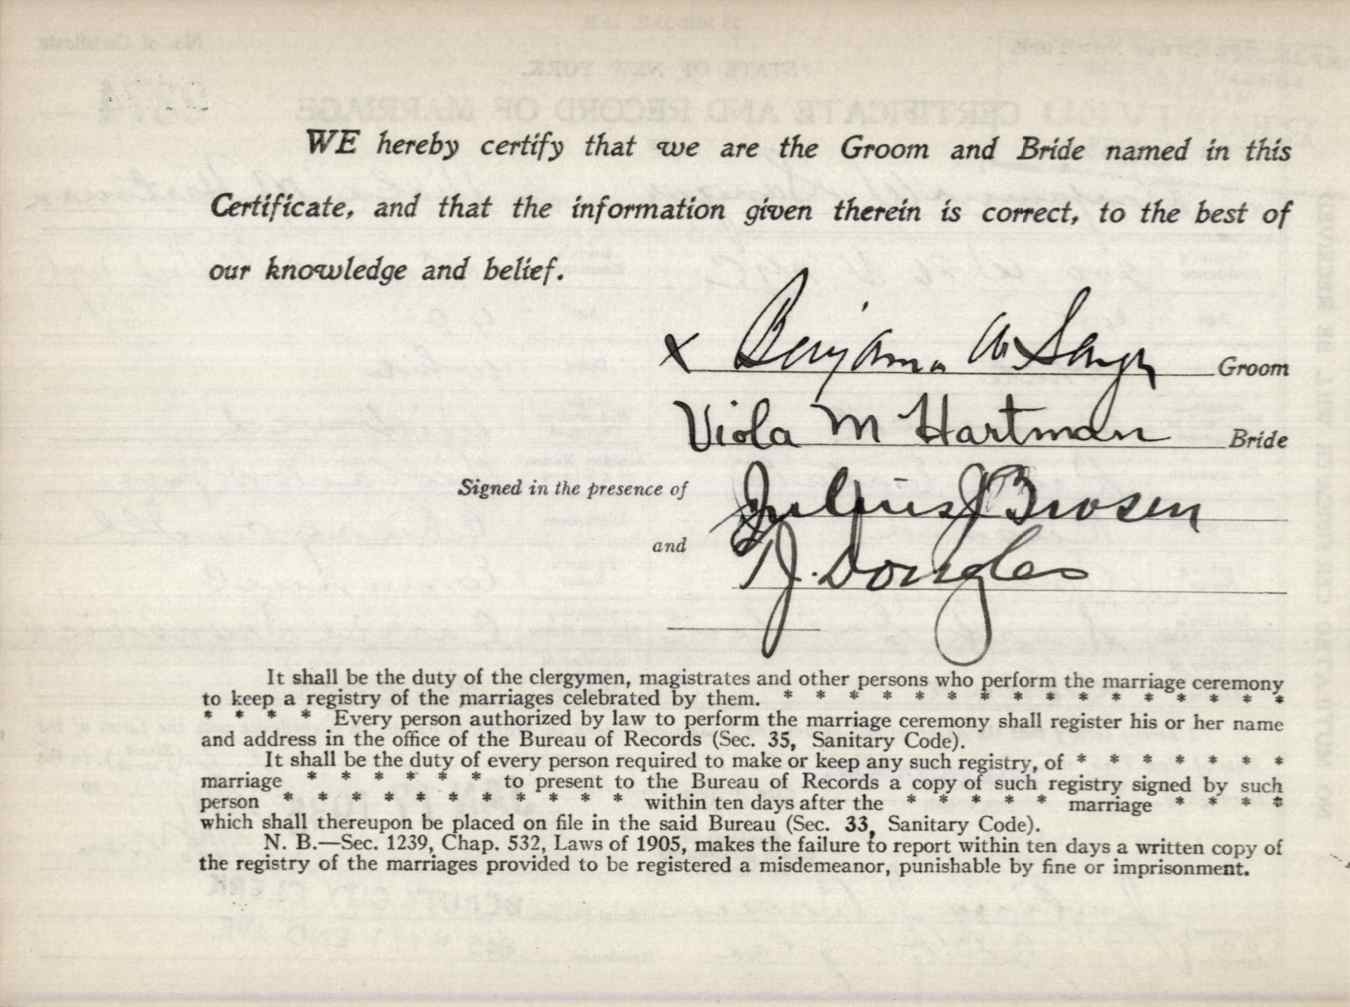 WE hereby certify that we are the Groom and Bride named in this
Certificate, and that the information given therein is correct, to the best of
our knowledge and belief.
x Benjamin W Groom
Viola M Hartman Bride
Signed in the presence of Julius J Brosen
and J. Douglas
It shall be the duty of the clergymen, magistrates and other persons who perform the marriage ceremony
to keep a registry of the marriages celebrated by them. * * * * * * * * * * * * * * * *
* * * * Every person authorized by law to perform the marriage ceremony shall register his or her name
and address in the office of the Bureau of Records (Sec. 35, Sanitary Code).
It shall be the duty of every person required to make or keep any such registry, of * * * * * * *
marriage * * * * * * to present to the Bureau of Records a copy of such registry signed by such
person * * * * * * * * * * * within ten days after the * * * * * marriage * * * *
which shall thereupon be placed on file in the said Bureau (Sec. 33, Sanitary Code).
N. B.—Sec. 1239, Chap. 532, Laws of 1905, makes the failure to report within ten days a written copy of
the registry of the marriages provided to be registered a misdemeanor, punishable by fine or imprisonment.